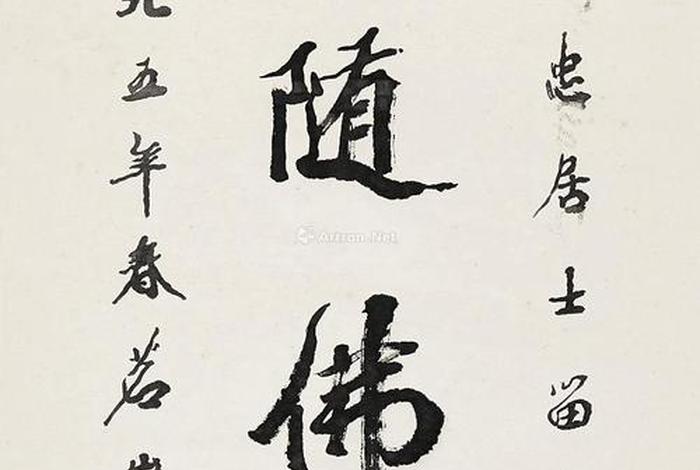 忠居士留
随佛
九五年春茗山
Artron.Net